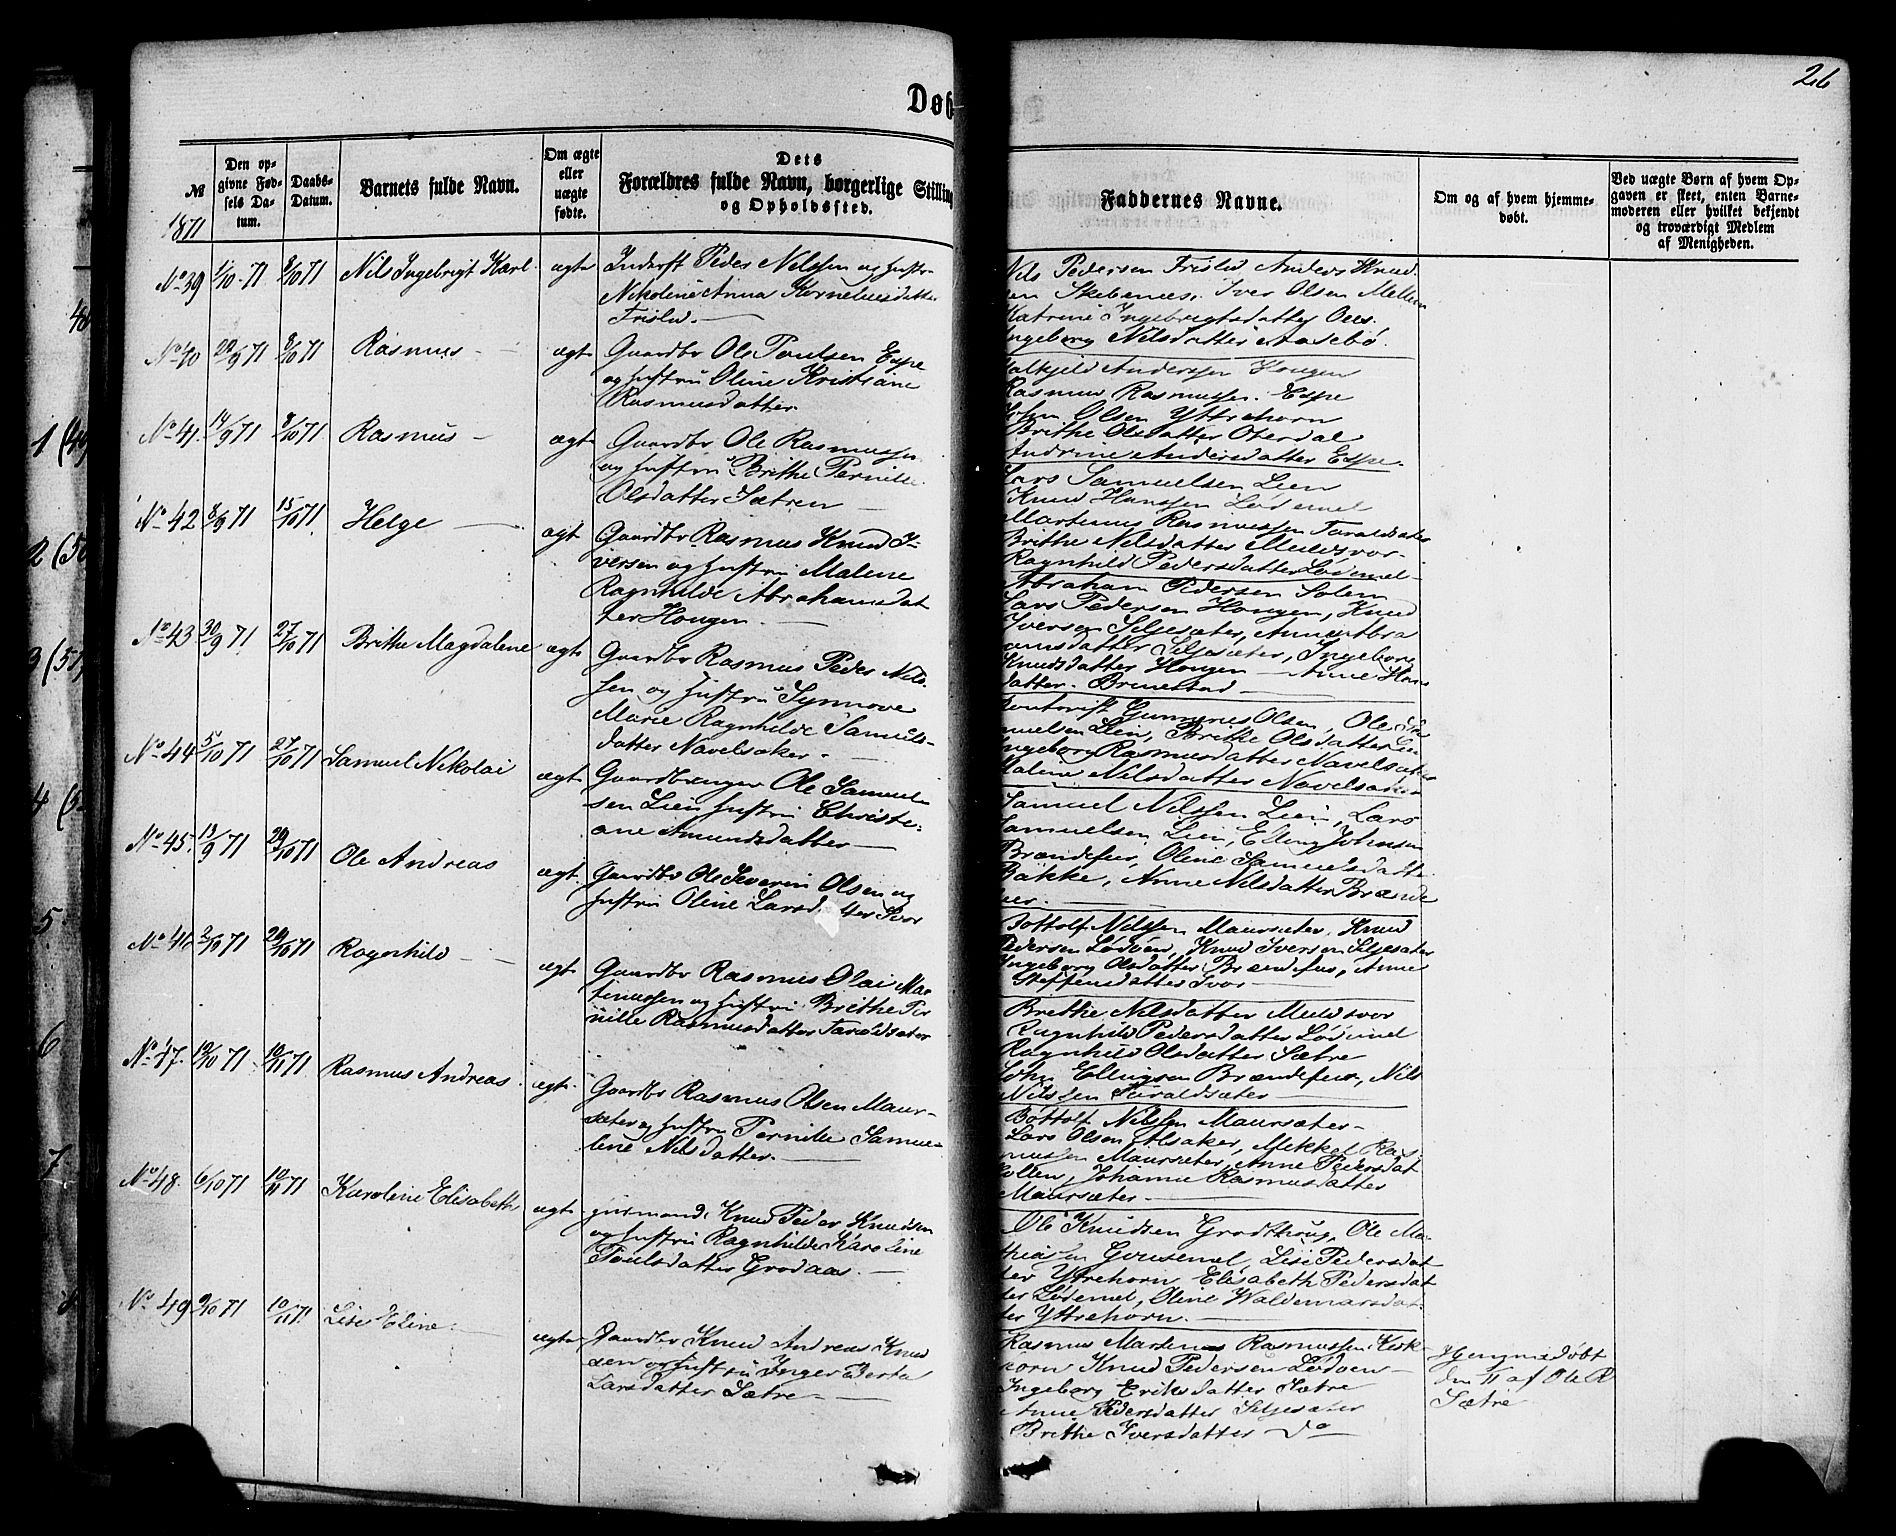 26
Døb
№
1871
Den op-
givne Fød-
sels Da-
tum.
Daabs-
Datum.
Barnets fulde Navn.
Om ægte
eller
uægte
fødte.
Dets
Forældres fulde Navn, borgerlige Stilling
og Opholdssted.
Faddernes Navne.
Om og af hvem hjemme-
døbt.
Ved uægte Børn af hvem Op-
gaven er skeet, enten Barne-
moderen eller hvilket bekjendt
og troværdigt Medlem
af Menigheden.
No 39 1/10 71 8/10 71 Nils Ingebrigt Karl. ægte Inderst Peder Nilssen og hustr.
Nikoline Anna Kornelius datter
Frislid.
Nils Pedersen Frislid Anders Knud
sen Skebenes. Iver Olsen Mellem
Katrine Ingebrigtsdatter
Ingeborg Nilsdatter Aasebö.
No 40 29/9 71 8/10 71 Rasmus ægt Gaardbr Ole Poulsen Espe
og hustru Oline Kristiane
Rasmusdatter.
Anderssen Hougen
Rasmus Rasmussen. Espe
John Olsen Yttrehorn
Brithe Olsdatter Oterdal
Andrine Andersdatter Espe.
No 41. 14/9 71 8/10 71 Rasmus ægt Gaardbr Ole Rasmussen
og hustru Brithe Pernille
Olsdatter Sætren
Lars Samuelsen Lien
Knud Hanssen Lødemel
Martinus Rasmussen Taraldsæter
Brithe Nilsdatter Muldsvor
Ragnhild Pedersdatter Lødemel
No 42 8/9 71 15/10 71 Helge ægt Gaardbr Rasmus Knud I-
versen og hustru Malene
Ragnhilde Abrahamsdat
ter Hougen.
Abraham Pedersen Solem
Lars Pedersen Hougen, Knud
Iversen Seljesæter, Anne Abra
hamsdatter Seljesæter, Ingeborg
Knudsdatter Hougen Anne Hans
datter. Brunestad
No 43 30/9 71 27/10 71 Brithe Magdalene ægt Gaardbr Rasmus Peder Nils-
sen og hustru Synnove
Marie Ragnhilde Samuels-
datter Navelsaker.
Kontorist Gunnerus Olsen, Ole Sa
muelsen Lien, Brithe Olsdatter Lien
Ingeborg Rasmusdatter Navelsaker
Malene Nilsdatter Navelsaker
No 44 5/10 71 27/10 71 Samuel Nikolai ægt Gaardbruger Ole Samuel-
sen Lien hustru Christi-
ane Amundsdatter
Samuel Nilssen Lien, Lars
Samuelsen Lien, Elling Johnsen
Brændefur, Oline Samuelsdatter
Bakke, Anne Nilsdatter Brænde
fur.
No 45. 13/9 71 29/10 71 Ole Andreas ægt. Gaardbr Ole Severin Olsen og
hustru Oline Larsdatter Svor
Bottolf Nilssen Maursæter, Knud
Pedersen Lødöen, Knud Iversen Seljesæter
Ingeborg Olsdatter Brændefur, Anne
Steffensdatter Svor
No 46 2/10 71 29/10 71 Ragnhild ægt Gaardbr Rasmus Olai Mar
tinussen og hustru Brithe Per
nille Rasmusdatter Taraldsæter
Brethe Nilsdatter Muldsvor
Ragnhild Pedersdatter Lødemel
Ragnhild Olsdatter Sætre
John Ellingsen Brændefur, Nils
Nilssen Taraldsæter
No 47. 19/10 71 10/11 71 Rasmus Andreas. ægt. Gaardbr Rasmus Olsen Maur-
sæter og hustru Pernille Samue-
lene Nilsdatter.
Bottolf Nilssen Maursæter
Lars Olsen Alsaker, Mekkel Ras
mussen Maursæter, Anne Pedersdat
Holten, Johanne Rasmusdatter
Maursæter
No 48. 6/10 71 10/11 71 Karoline Elisabeth ægt Knud Peder Knudsen
og hustru Ragnhilde Karoline
Poulsdatter Grodaas.
Ole Knudsen Grodthoug, Ole Ma-
thiassen Lise Pedersdat
ter Yttrehorn, Elisabeth Pedersdat
ter Lødemel, Oline Waldemarsdat
ter Yttrehorn.
No 49 9/10 71 10/11 71. Lise Eline. ægte Gaardbr Knud Andreas Knud
sen og hustru Inger Berta
Larsdatter Sætre
Rasmus Martenus Rasmussen Kirk-
horn Knud Pedersen Lödoen
Ingeborg Eriksdatter Sætre
Anne Pedersdatter Seljesæter
Brithe Iversdatter Do
døbt
den af Ole R
Sætre
1
2
3
4
5
6
7